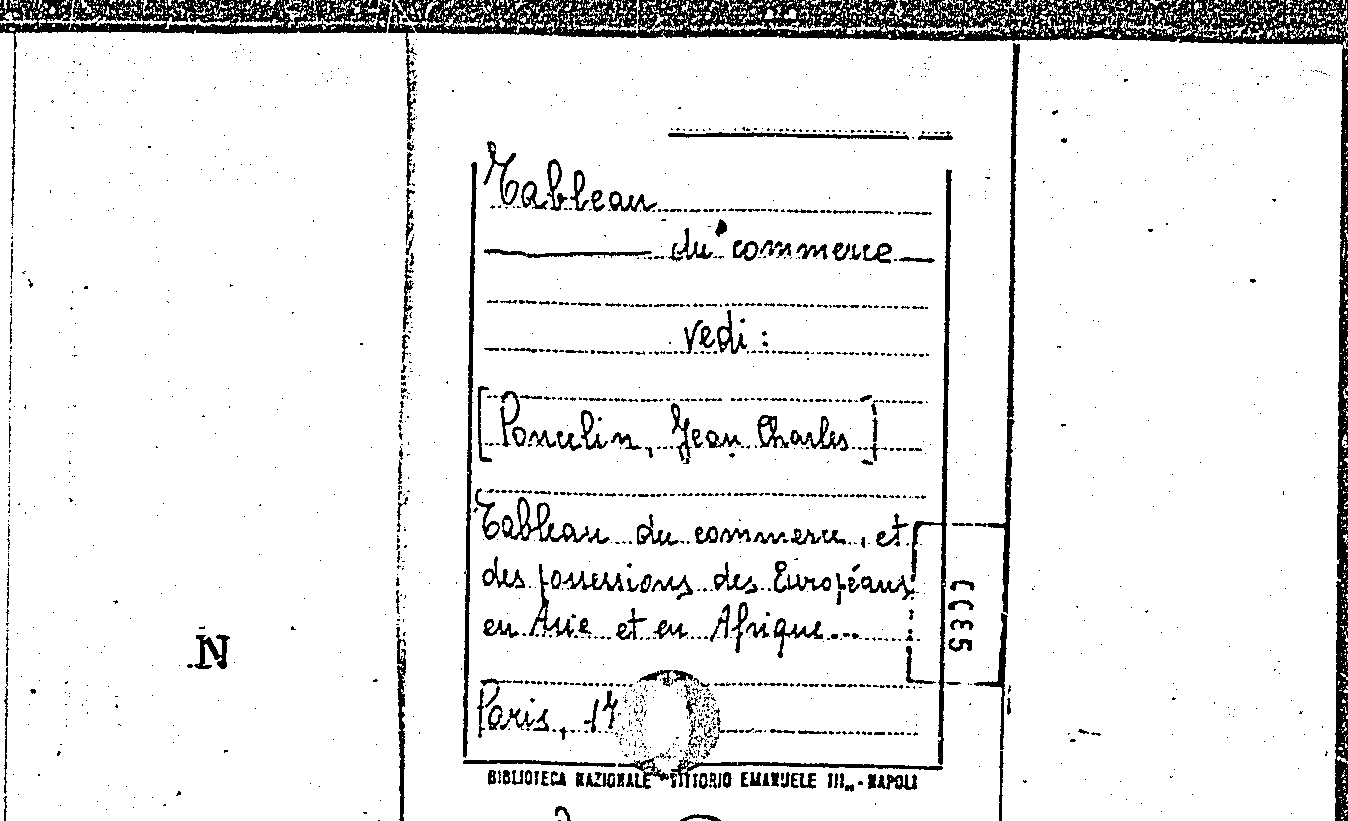 Tableau
du commerce
vedi :
[Poncelin, Jean Charles]
Tableau du commerce, et
des possessions des Européans
en Asie et en Afrique...
N
Paris, 17
BIBLIOTECA NAZIONALE "VITTORIO EMANUELE III" - NAPOLI